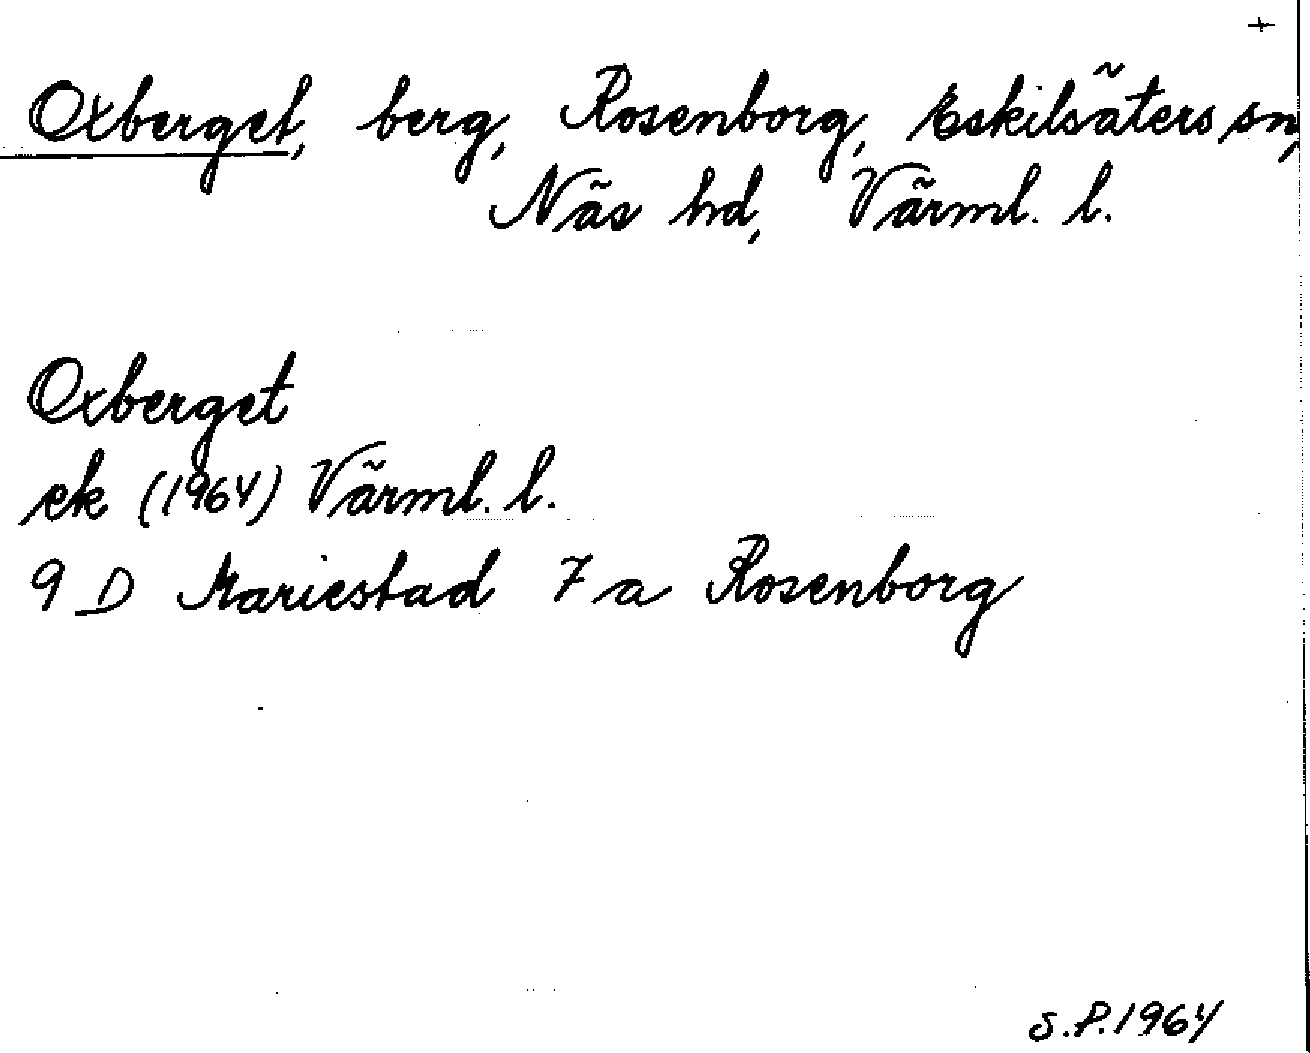 +
Oxberget, berg, Rosenborg, Eskilsäters sn,
Näs hd, Värml. l.
Oxberget
ek (1964) Värml. l.
9 D Mariestad 7 a Rosenborg
S.P. 1964